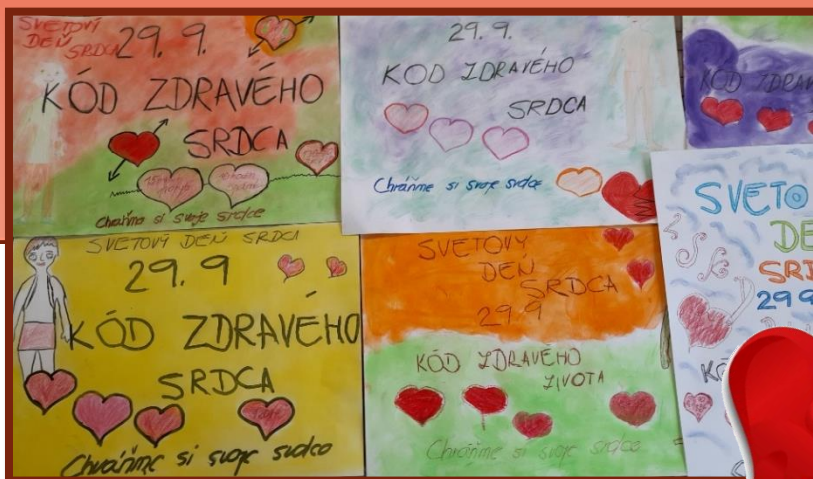 SVETOVÝ
DEŇ
SRDCA
29. 9.
KÓD ZDRAVÉHO
SRDCA
Chráňme si svoje srdce
29. 9.
KÓD ZDRAVÉHO
SRDCA
Chráňme si svoje srdce
KÓD ZDRAV
SVETOVÝ DEŇ SRDCA
29. 9
KÓD ZDRAVÉHO
SRDCA
Chráňme si svoje srdce
SVETOVÝ
DEŇ
SRDCA
29. 9
KÓD ZDRAVÉHO
ŽIVOTA
Chráňme si svoje srdce
SVETO
DE
SRD
29 9
KÓ